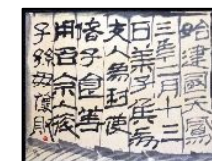 始建國天鳳
三年二月十三
日萊子侯為
支人為封使
偖子食等
用百余人後
子孫毋壞敗